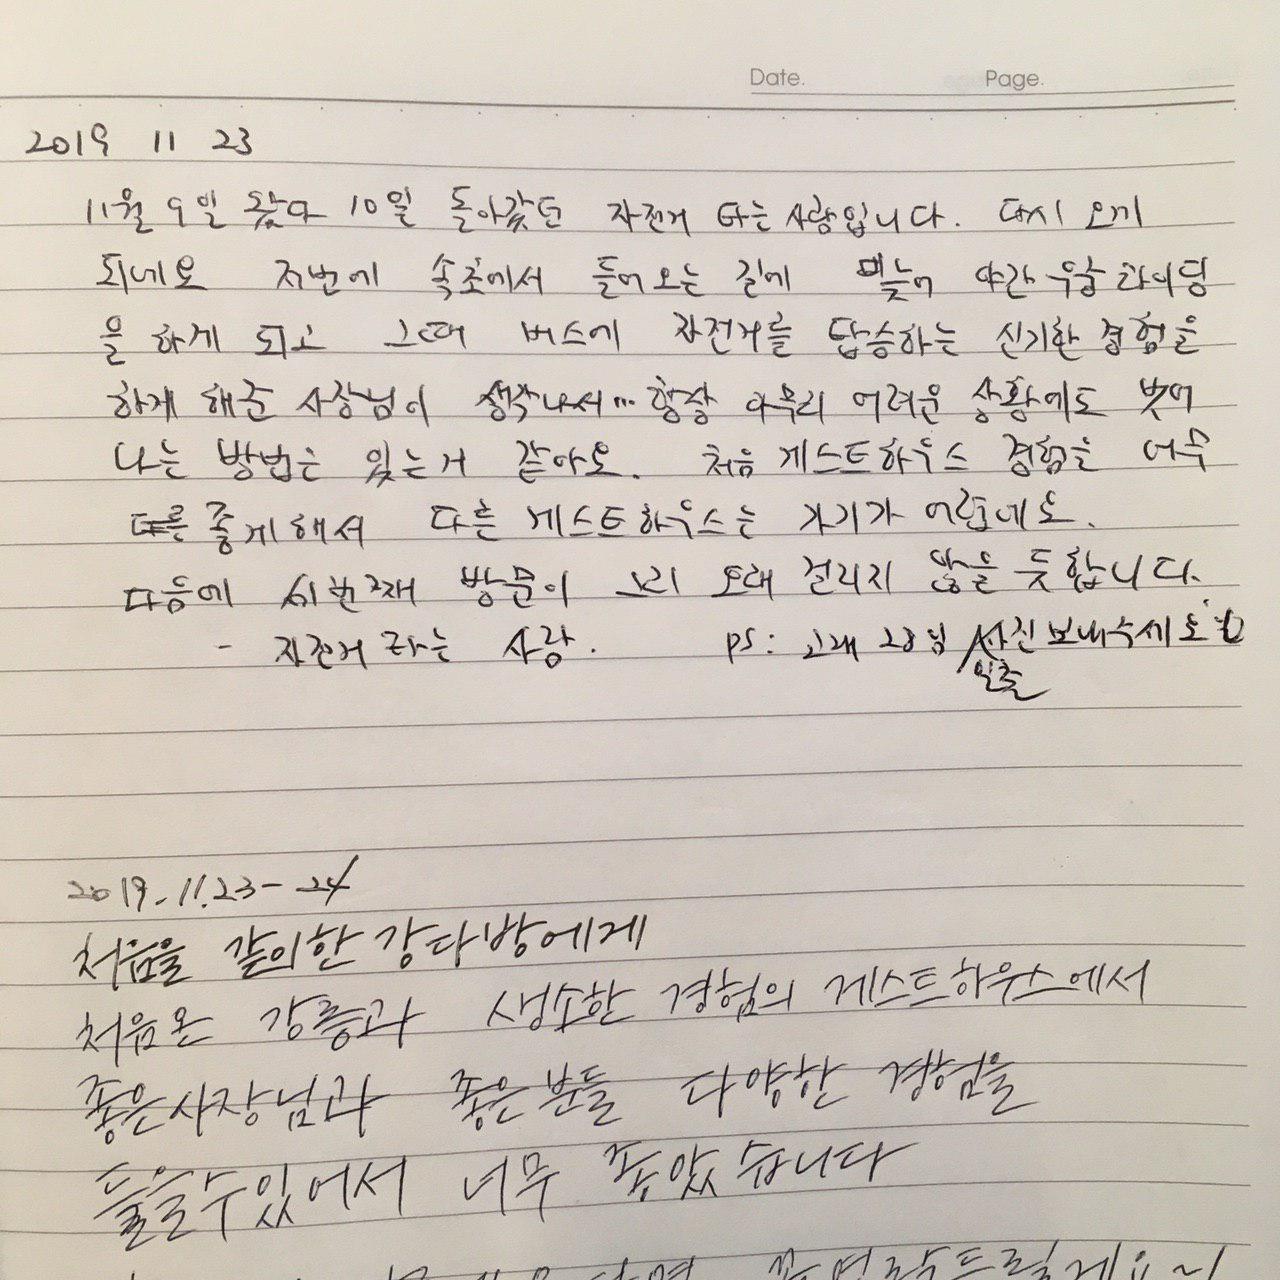 Date. Page.
2019 11 23
11월 9일 왔다 10일 돌아갔던 자전거 타는 사람입니다. 다시 오게
되네요 저번에 속초에서 들어오는 길에 몇늦어 야간 우중 라이딩
을 하게 되고 그때 버스에 자전거를 탑승하는 신기한 경험을
하게 해준 사장님이 생각나서... 항상 아무리 어려운 상황에도 벗어
나는 방법은 있는거 같아요. 처음 게스트하우스 경험을 너무
좋게해서 다른 게스트하우스는 가기가 어렵네요.
다음에 세번째 방문이 그리 오래 걸리지 않을 듯합니다.
- 자전거 타는 사람. ps: 고래 23님 일출 사진보내주세요
2019.11.23-24
처음을 같이한 강다방에게
처음온 강릉과 생소한 경험의 게스트하우스에서
좋은사장님과 좋은분들 다양한 경험을
들을수있어서 너무 좋았습니다
꼭 연락드릴게요~!